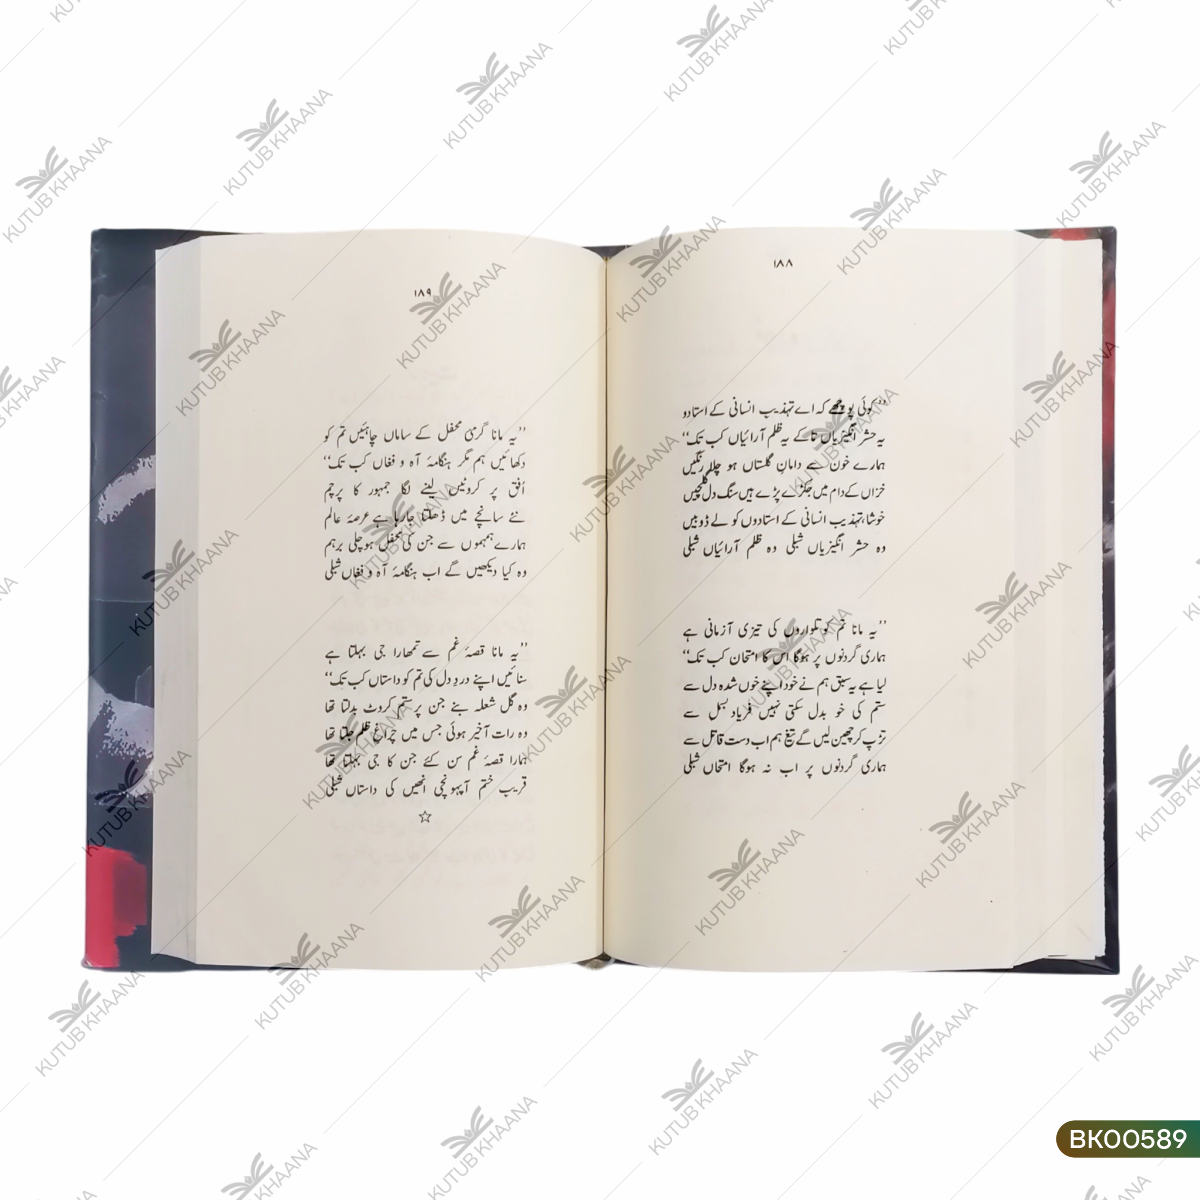 ۱۸۸
’’کوئی پوچھے کہ اے تہذیب انسانی کے استادو
یہ حشر انگیزیاں تاکے یہ ظلم آرائیاں کب تک‘‘
ہمارے خون سے دامانِ گلستاں ہو چلا رنگیں
خزاں کے دام میں جکڑے پڑے ہیں سنگ دل گلچیں
خوشا، تہذیب انسانی کے استادوں کو لے ڈوبیں
وہ حشر انگیزیاں شبلی وہ ظلم آرائیاں شبلی
’’یہ مانا تم کو تلواروں کی تیزی آزمانی ہے
ہماری گردنوں پر ہوگا اس کا امتحان کب تک‘‘
لیا ہے یہ سبق ہم نے خود اپنے خوں شدہ دل سے
ستم کی خو بدل سکتی نہیں فریاد بسمل سے
تڑپ کر چھین لیں گے تیغ ہم اب دست قاتل سے
ہماری گردنوں پر اب نہ ہوگا امتحاں شبلی
۱۸۹
’’یہ مانا گرمیٔ محفل کے ساماں چاہئیں تم کو
دکھائیں ہم مگر ہنگامۂ آہ و فغاں کب تک‘‘
اُفق پر کروٹیں لینے لگا جمہور کا پرچم
نئے سانچے میں ڈھلتا جارہا ہے عرصۂ عالم
ہمارے ہمہموں سے جن کی محفل ہوچلی برہم
وہ کیا دیکھیں گے اب ہنگامۂ آہ و فغاں شبلی
’’یہ مانا قصۂ غم سے تمھارا جی بہلتا ہے
سنائیں اپنے دردِ دل کی تم کو داستاں کب تک‘‘
وہ گل شعلہ بنے جن پر ستم کروٹ بدلتا تھا
وہ رات آخیر ہوئی جس میں چراغ ظلم جلتا تھا
ہمارا قصۂ غم سن کئے جن کا جی بہلتا تھا
قریب ختم آپہونچی انھیں کی داستاں شبلی
☆
BK00589
KUTUB KHAANA